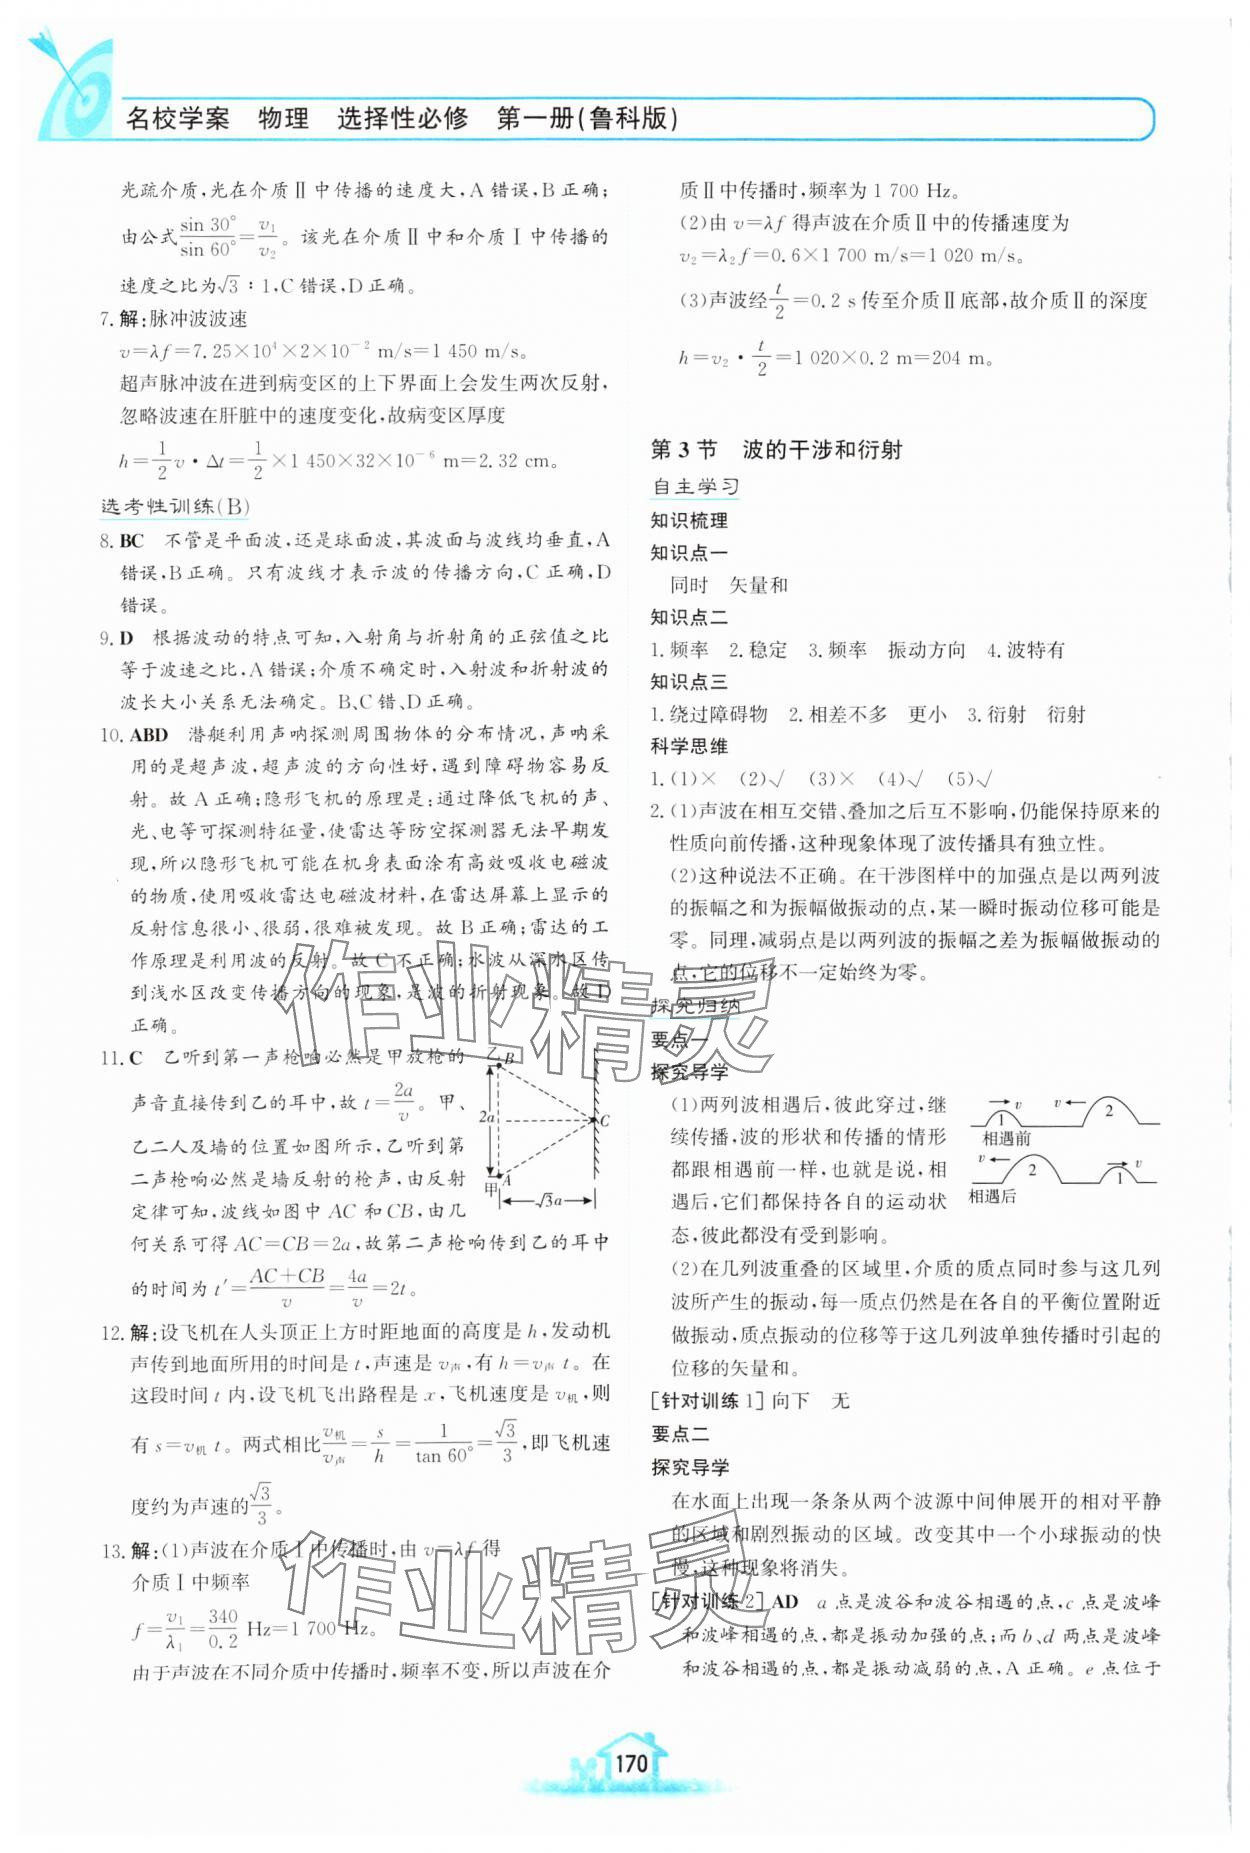 名校学案　物理　选择性必修　第一册(鲁科版)
光疏介质,光在介质Ⅱ中传播的速度大,A错误,B正确;
由公式 sin 30°/sin 60°=v₁/v₂。该光在介质Ⅱ中和介质Ⅰ中传播的
速度之比为√3∶1,C错误,D正确。
7. 解:脉冲波波速
v=λf=7.25×10⁴×2×10⁻² m/s=1 450 m/s。
超声脉冲波在进到病变区的上下界面上会发生两次反射,
忽略波速在肝脏中的速度变化,故病变区厚度
h=1/2 v·Δt=1/2×1 450×32×10⁻⁶ m=2.32 cm。
选考性训练(B)
8. BC　不管是平面波,还是球面波,其波面与波线均垂直,A
错误,B正确。只有波线才表示波的传播方向,C正确,D
错误。
9. D　根据波动的特点可知,入射角与折射角的正弦值之比
等于波速之比,A错误;介质不确定时,入射波和折射波的
波长大小关系无法确定。B、C错,D正确。
10. ABD　潜艇利用声呐探测周围物体的分布情况,声呐采
用的是超声波,超声波的方向性好,遇到障碍物容易反
射。故A正确;隐形飞机的原理是:通过降低飞机的声、
光、电等可探测特征量,使雷达等防空探测器无法早期发
现,所以隐形飞机可能在机身表面涂有高效吸收电磁波
的物质,使用吸收雷达电磁波材料,在雷达屏幕上显示的
反射信息很小、很弱,很难被发现。故B正确;雷达的工
作原理是利用波的反射。故C不正确;水波从深水区传
到浅水区改变传播方向的现象,是波的折射现象。故D
正确。
11. C　乙听到第一声枪响必然是甲放枪的
声音直接传到乙的耳中,故t=2a/v。甲、
乙二人及墙的位置如图所示,乙听到第
二声枪响必然是墙反射的枪声,由反射
定律可知,波线如图中AC和CB,由几
何关系可得AC=CB=2a,故第二声枪响传到乙的耳中
的时间为t′=(AC+CB)/v=4a/v=2t。
乙 B
2a
C
A
甲
√3a
12. 解:设飞机在人头顶正上方时距地面的高度是h,发动机
声传到地面所用的时间是t,声速是v声,有h=v声 t。在
这段时间t内,设飞机飞出路程是x,飞机速度是v机,则
有s=v机 t。两式相比v机/v声=s/h=1/tan 60°=√3/3,即飞机速
度约为声速的√3/3。
13. 解:(1)声波在介质Ⅰ中传播时,由v=λf得
介质Ⅰ中频率
f=v₁/λ₁=340/0.2 Hz=1 700 Hz。
由于声波在不同介质中传播时,频率不变,所以声波在介
质Ⅱ中传播时,频率为1 700 Hz。
(2)由v=λf得声波在介质Ⅱ中的传播速度为
v₂=λ₂f=0.6×1 700 m/s=1 020 m/s。
(3)声波经t/2=0.2 s传至介质Ⅱ底部,故介质Ⅱ的深度
h=v₂·t/2=1 020×0.2 m=204 m。
第3节　波的干涉和衍射
自主学习
知识梳理
知识点一
同时　矢量和
知识点二
1. 频率　2. 稳定　3. 频率　振动方向　4. 波特有
知识点三
1. 绕过障碍物　2. 相差不多　更小　3. 衍射　衍射
科学思维
1. (1)×　(2)√　(3)×　(4)√　(5)√
2. (1)声波在相互交错、叠加之后互不影响,仍能保持原来的
性质向前传播,这种现象体现了波传播具有独立性。
(2)这种说法不正确。在干涉图样中的加强点是以两列波
的振幅之和为振幅做振动的点,某一瞬时振动位移可能是
零。同理,减弱点是以两列波的振幅之差为振幅做振动的
点,它的位移不一定始终为零。
探究归纳
要点一
探究导学
(1)两列波相遇后,彼此穿过,继
续传播,波的形状和传播的情形
都跟相遇前一样,也就是说,相
遇后,它们都保持各自的运动状
态,彼此都没有受到影响。
v v
1 2
相遇前
v v
2 1
相遇后
(2)在几列波重叠的区域里,介质的质点同时参与这几列
波所产生的振动,每一质点仍然是在各自的平衡位置附近
做振动,质点振动的位移等于这几列波单独传播时引起的
位移的矢量和。
[针对训练1] 向下　无
要点二
探究导学
在水面上出现一条条从两个波源中间伸展开的相对平静
的区域和剧烈振动的区域。改变其中一个小球振动的快
慢,这种现象将消失。
[针对训练2] AD　a点是波谷和波谷相遇的点,c点是波峰
和波峰相遇的点,都是振动加强的点;而b、d两点是波峰
和波谷相遇的点,都是振动减弱的点,A正确。e点位于
170
作业精灵
作业精灵